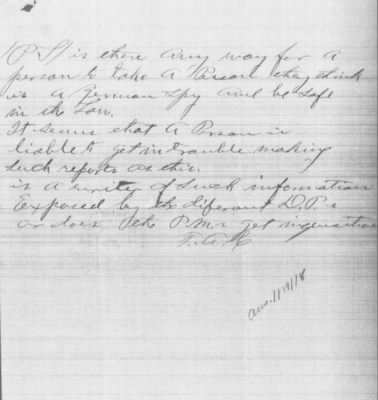 (P.S) is there any way for a
person to take a Person they think
is a German Spy and be safe
in the Law.
It seems that a Person is
liable to get in trouble making
such reports as this.
is a of such information
Exposed by the diferent D.P.s
or does the P.M.s get inquisitive
ans. 11/9/18